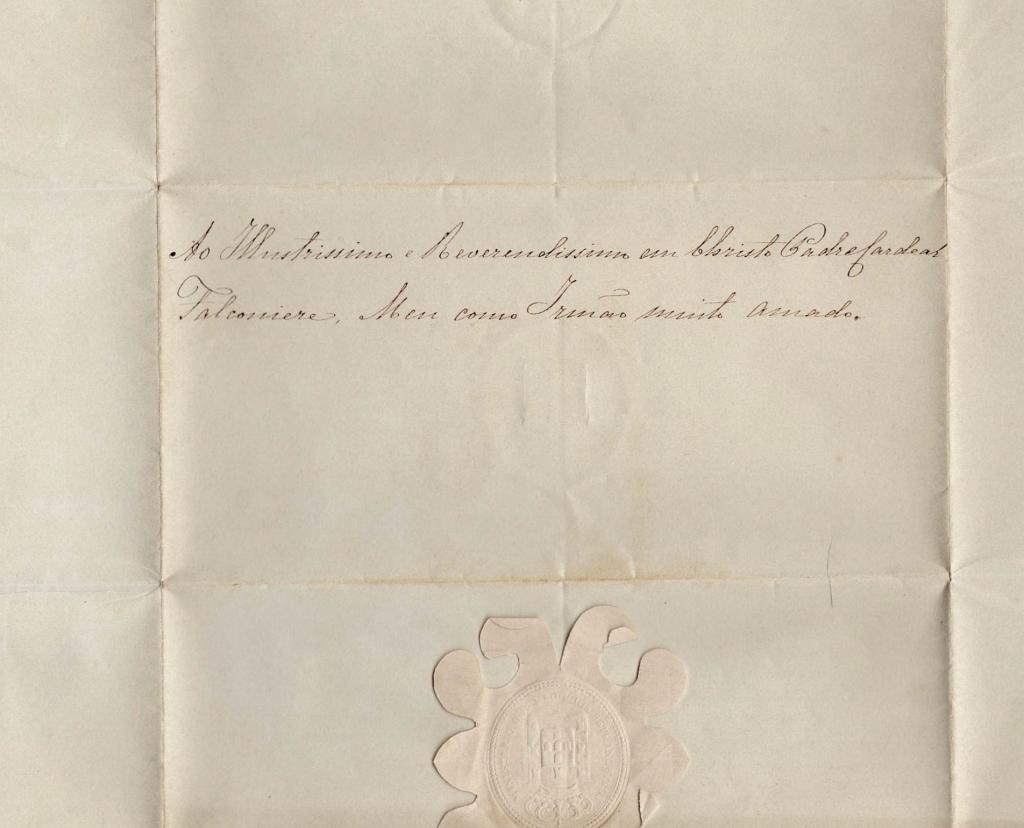 Ao Illustrissimo e Reverendissimo em Christo Padre Cardeal
Falconiere, Meu como Irmão muito amado.